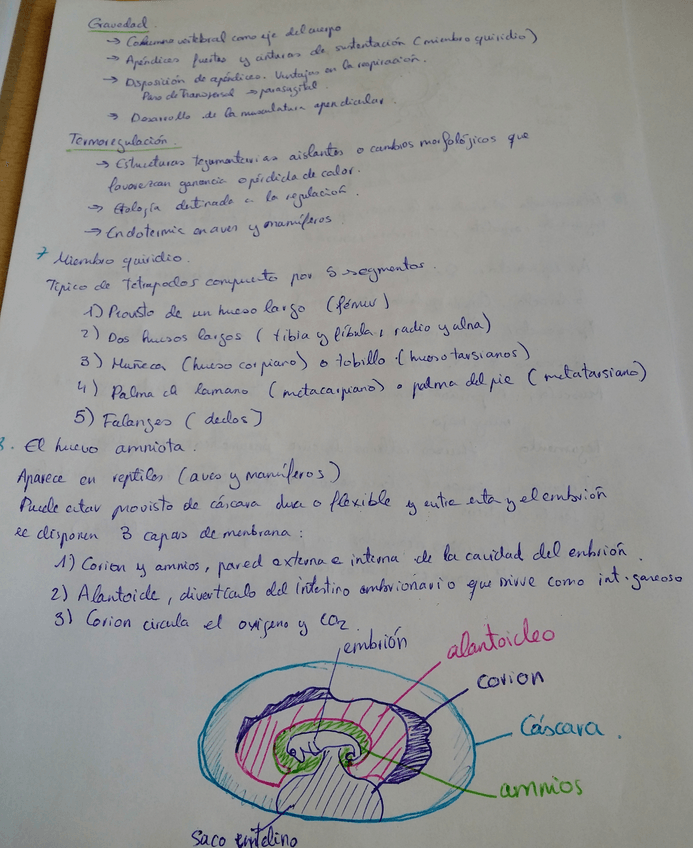 Gravedad.
→ Columna vertebral como eje del cuerpo
→ Apéndices fuertes y cinturas de sustentación (miembro quiridio)
→ Disposición de apéndices. Ventajas en la respiración.
Paso de Transversal → parasagital.
→ Desarrollo de la musculatura apendicular.
Termoregulación.
→ Estructuras tegumentarias aislantes o cambios morfológicos que
favorezcan ganancia o pérdida de calor.
→ Etología destinada a la regulación.
→ Endotermia en aves y mamíferos.
7 Miembro quiridio.
Típico de tetrápodos compuesto por 5 segmentos.
1) Provisto de un hueso largo (fémur)
2) Dos huesos largos (tibia y fíbula, radio y ulna)
3) Muñeca (hueso corpiano) o tobillo (hueso tarsianos)
4) Palma de la mano (metacarpiano) o palma del pie (metatarsiano)
5) Falanges (dedos)
8. El huevo amniota.
Aparece en reptiles (aves y mamíferos)
Puede estar provisto de cáscara dura o flexible y entre esta y el embrión
se disponen 3 capas de menbrana:
1) Corion y amnios, pared externa e interna de la cavidad del enbrión.
2) Alantoide, divertículo del intestino embrionario que sirve como int. gaseoso
3) Corion circula el oxígeno y CO2.
embrión
alantoideo
corion
Cáscara.
amnios
Saco vitelino